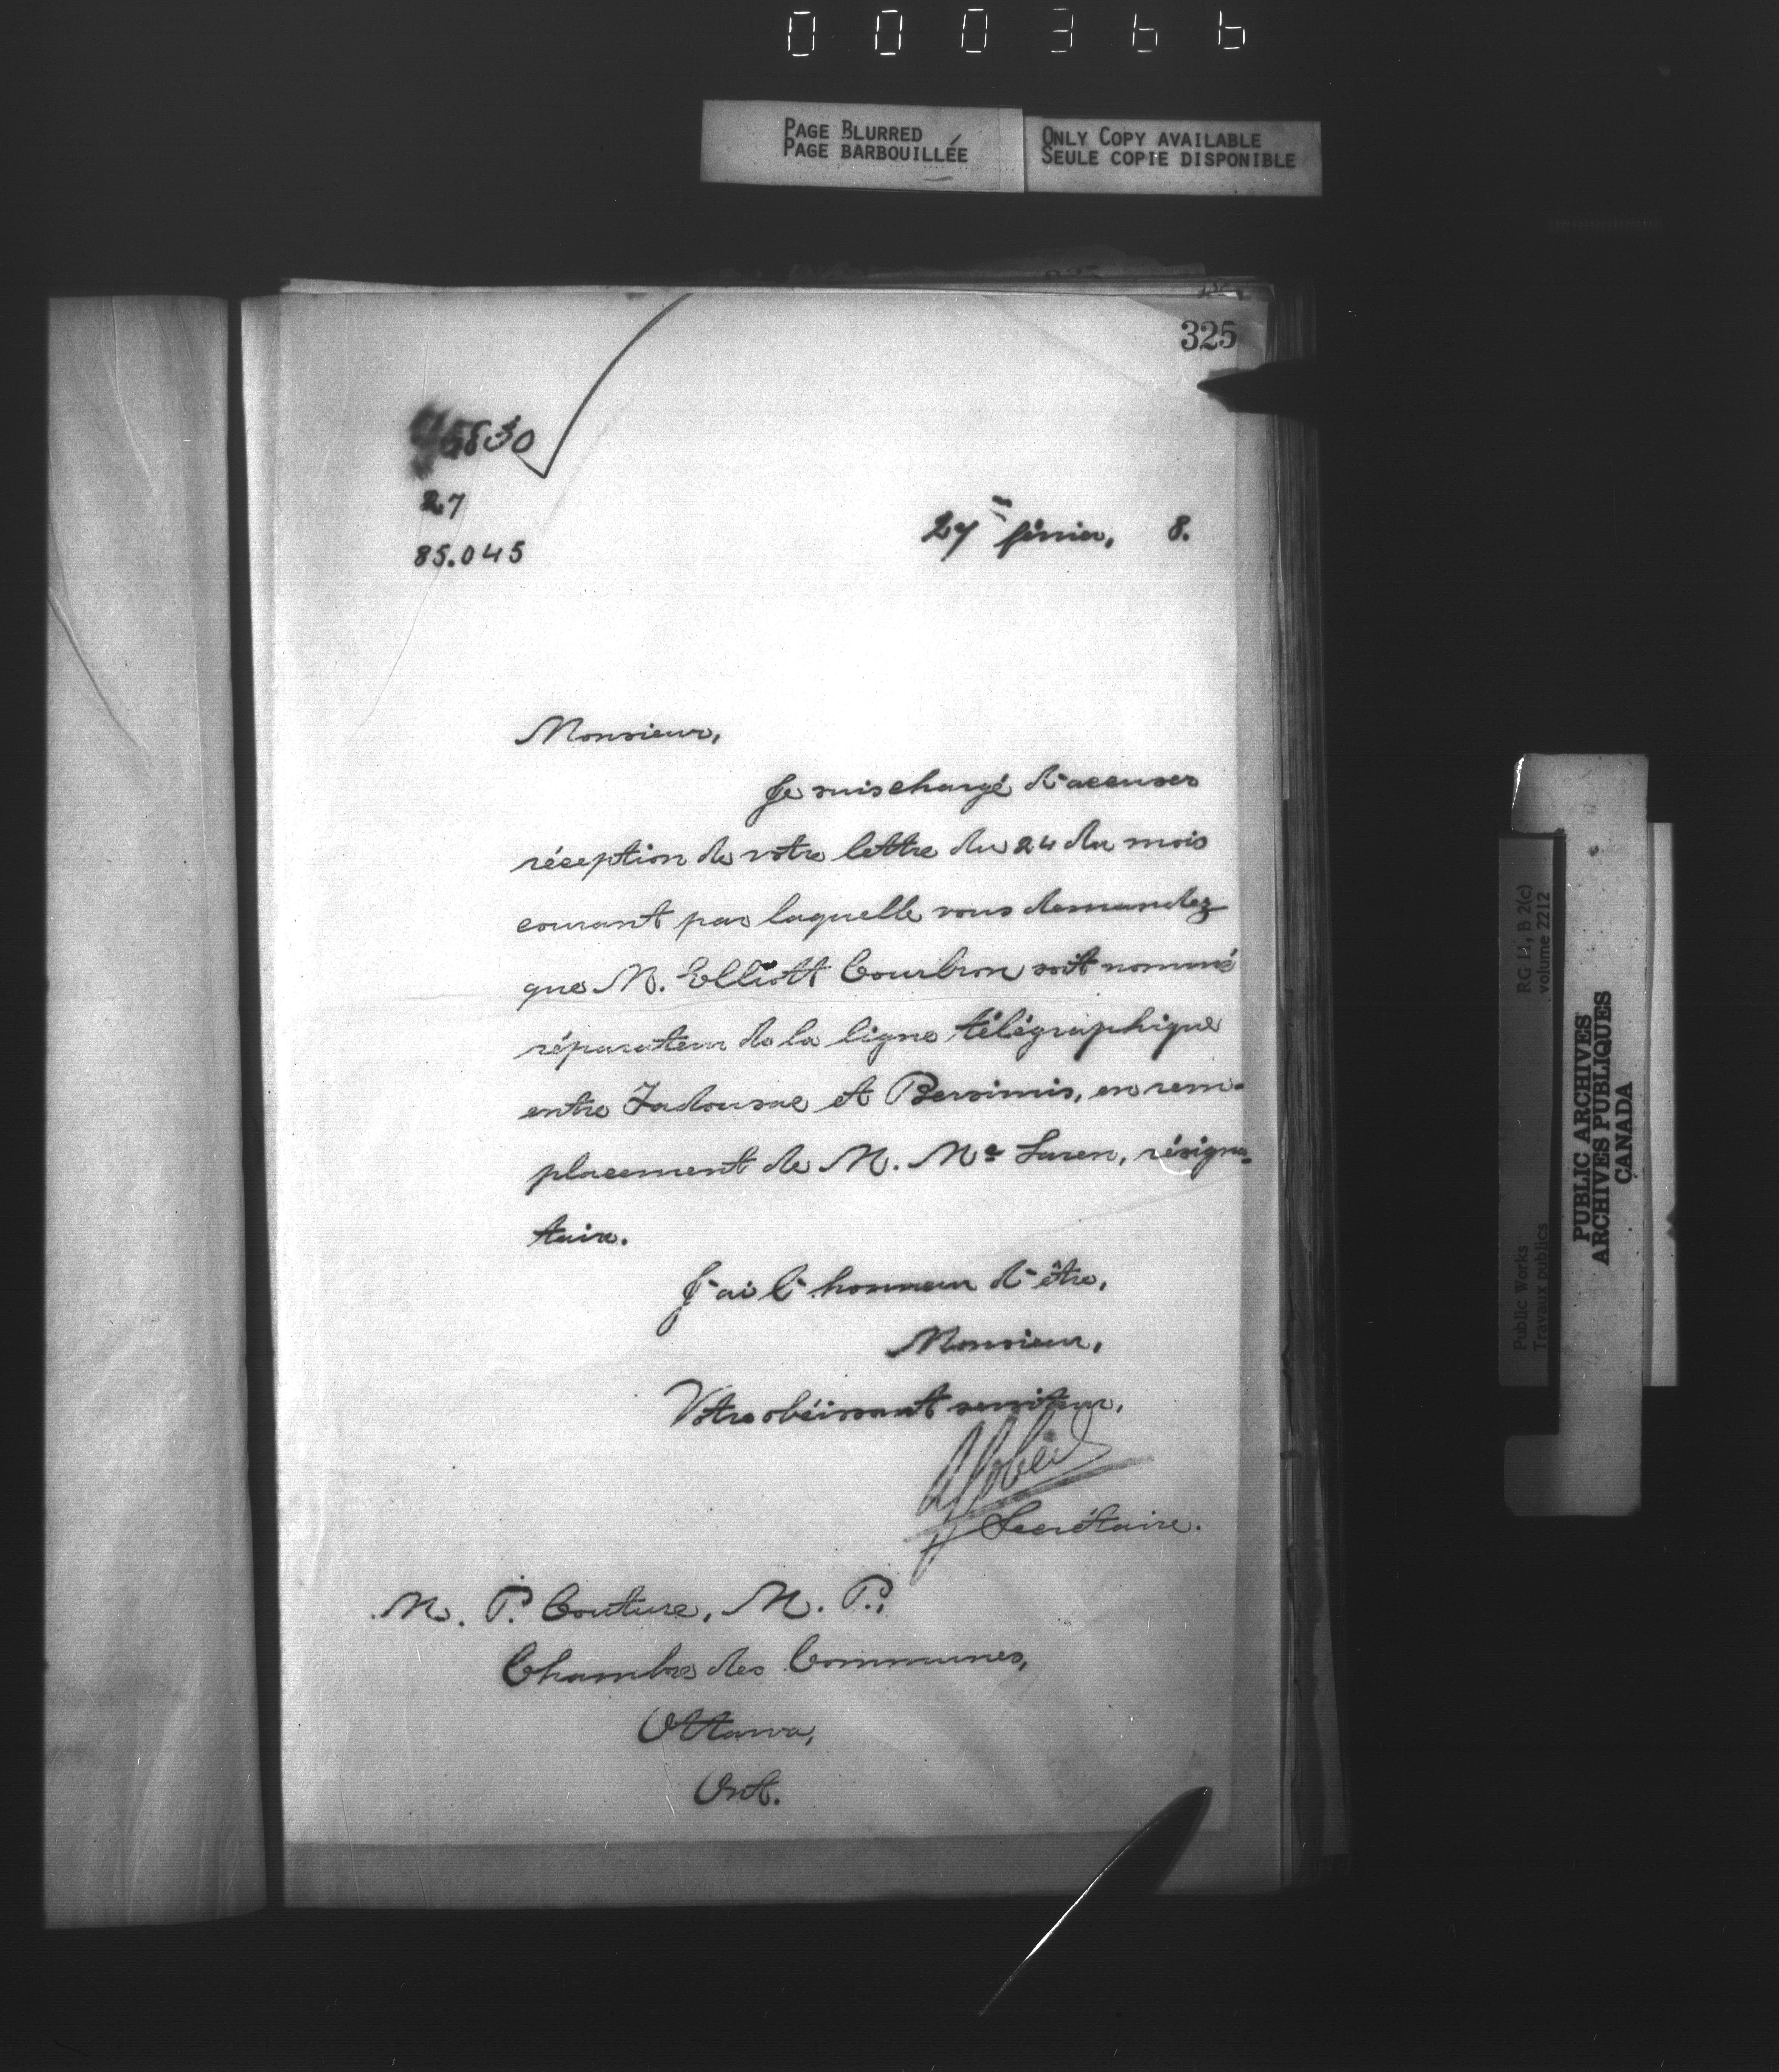 000366
PAGE BLURRED
PAGE BARBOUILLÉE
ONLY COPY AVAILABLE
SEULE COPIE DISPONIBLE
325
95830
27
85.045
27 février, 8.
Monsieur,
Je suis chargé d'accuser
réception de votre lettre du 24 du mois
courant par laquelle vous demandez
que M. Elliott Courbron soit nommé
réparateur de la ligne télégraphique
entre Tadousac et Bersimis, en rem-
placement de M. Mc Laren, résigna-
taire.
J'ai l'honneur d'être,
Monsieur,
Votre obéissant serviteur,
Secrétaire.
M. P. Couture, M. P.,
Chambre des Communes,
Ottawa,
Ont.
RG 11, B 2(c)
volume 2212
Public Works
Travaux publics
PUBLIC ARCHIVES
ARCHIVES PUBLIQUES
CANADA